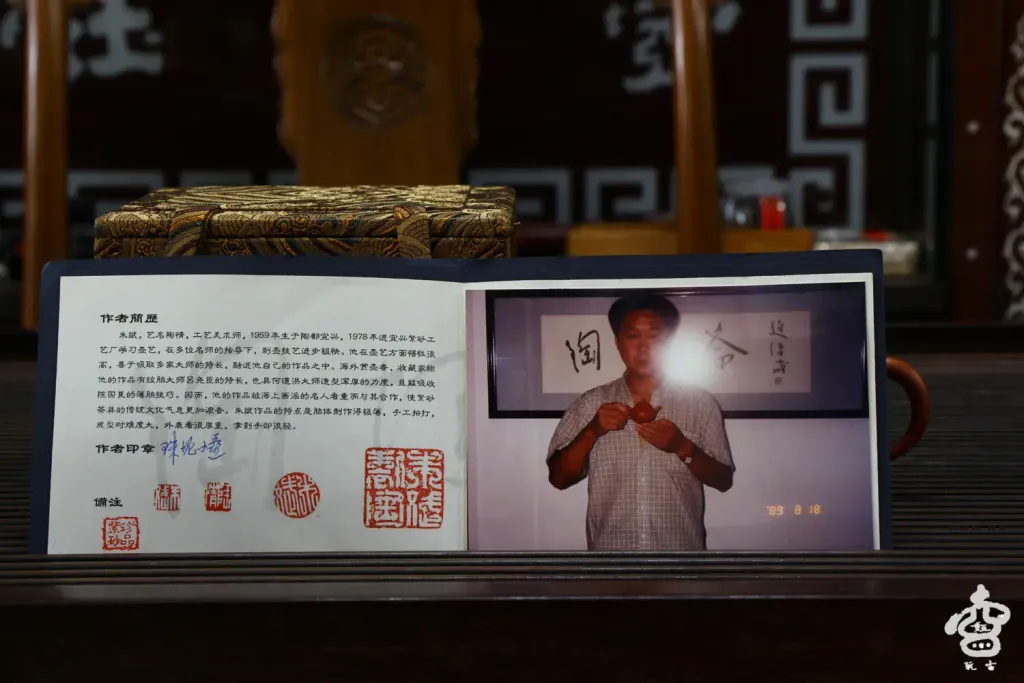 作者簡歷
朱斌，艺名陶精，工艺美术师，1959年生于陶都宜兴，1978年进宜兴紫砂工
艺厂学习壶艺，在多位名师的指导下，制壶技艺进步极快，他在壶艺方面悟性很
高，善于吸取多家大师的特长，融进他自己的作品之中，海外壶客、收藏家称
他的作品有绞胎大师吕尧臣的特长，也具何道洪大师造型浑厚的力度，且能吸收
陈国良的薄胎技巧。因而，他的作品被海上画派的名人看重而与其合作，使紫砂
茶具的传统文化气息更加浓奋。朱斌作品的特点是胎体制作得极薄，手工拍打，
成型时难度大，外表看很厚重，拿到手却很轻。
作者印章
備注
珍品紫砂
陶
'89 8 18
玩古